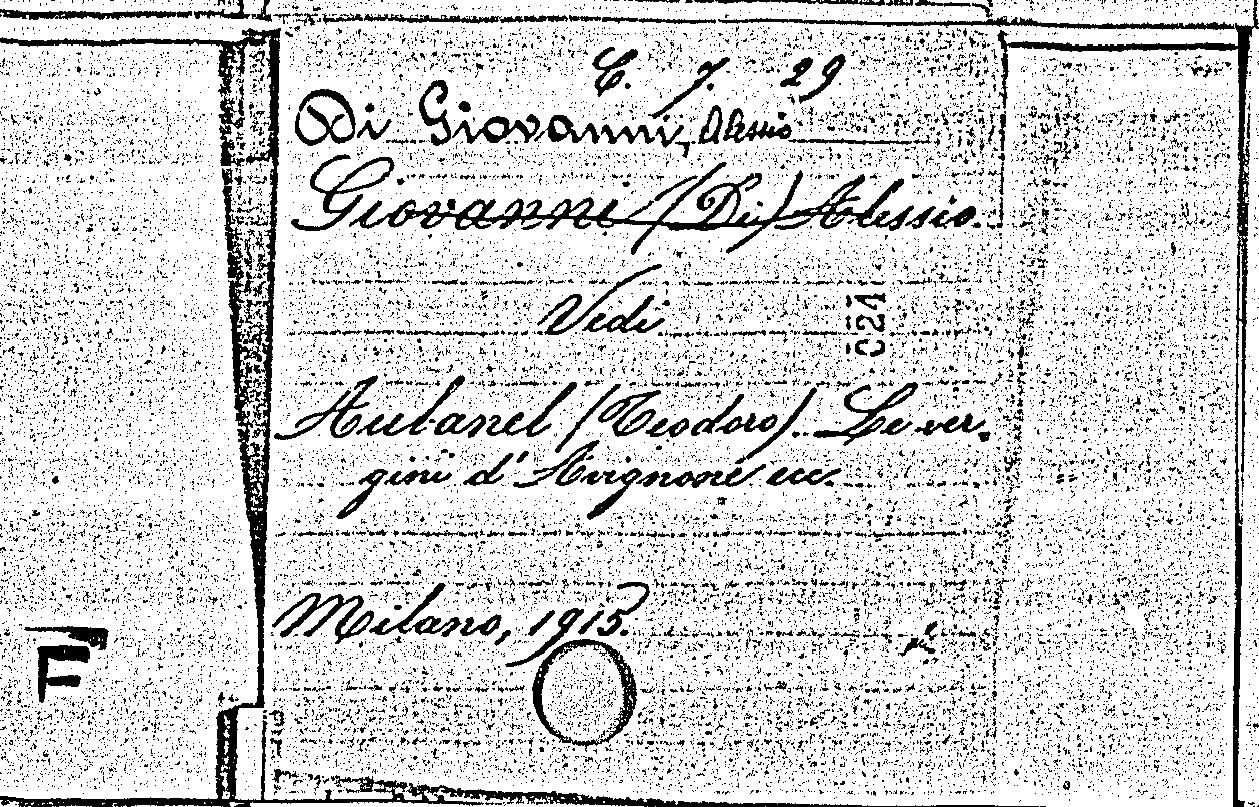 C. 7. 29
Di Giovanni, Alessio
Giovanni (Di) Alessio.
Vedi
024
Aubanel (Teodoro). Le ver-
gini d'Avignone ecc.
Milano, 1915.
F